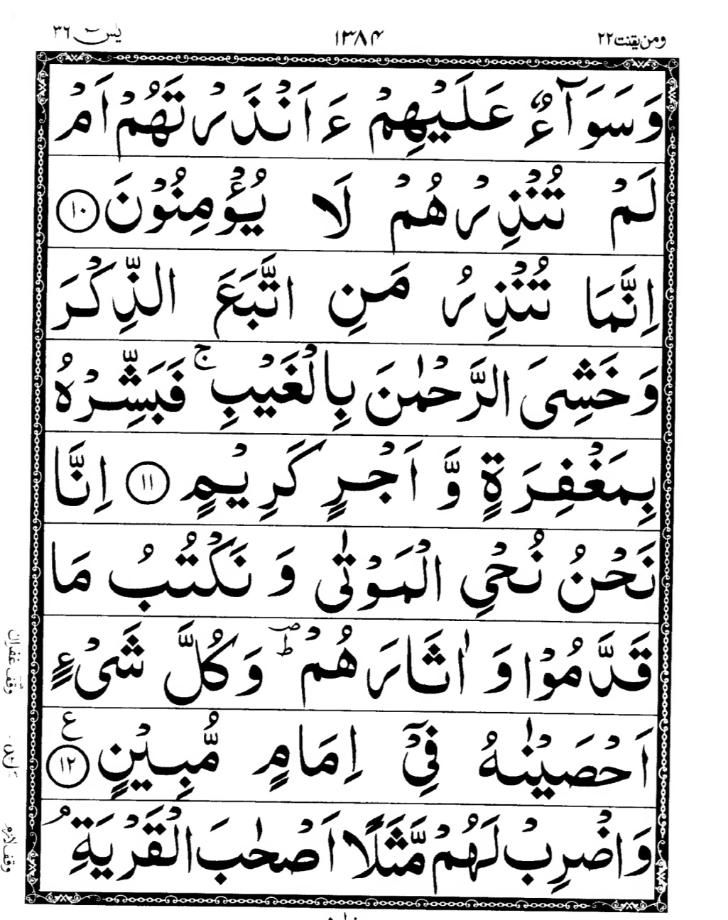 ومن یقنت ٢٢
١٣٨۴
یٰسٓ ٣٦
وَسَوَآءٌ عَلَيْهِمْ ءَاَنْذَرْتَهُمْ اَمْ
لَمْ تُنْذِرْهُمْ لَا يُؤْمِنُوْنَ ١٠
اِنَّمَا تُنْذِرُ مَنِ اتَّبَعَ الذِّكْرَ
وَخَشِىَ الرَّحْمٰنَ بِالْغَيْبِ ۚ فَبَشِّرْهُ
بِمَغْفِرَةٍ وَّ اَجْرٍ كَرِيْمٍ ١١ اِنَّا
نَحْنُ نُحْىِ الْمَوْتٰى وَ نَكْتُبُ مَا
قَدَّمُوْا وَ اٰثَارَهُمْ ؕ وَكُلَّ شَىْءٍ
اَحْصَيْنٰهُ فِىْٓ اِمَامٍ مُّبِيْنٍ ١٢ ع
وَاضْرِبْ لَهُمْ مَّثَلًا اَصْحٰبَ الْقَرْيَةِ ۘ
وقف غفران
وقف لازم